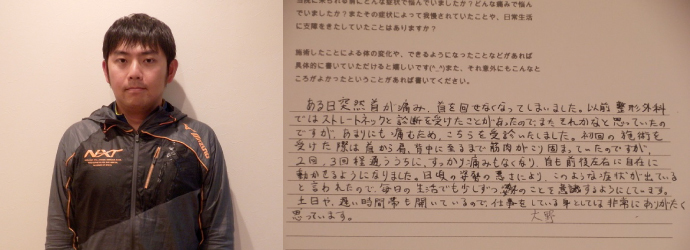 当院に来られる前にどんな症状で悩んでいましたか？どんな痛みで悩ん
でいましたか？またその症状によって我慢されていたことや、日常生活
に支障をきたしていたことはありますか？
施術したことによる体の変化や、できるようになったことなどがあれば
具体的に書いていただけると嬉しいです(^_^)また、それ意外にもこんなと
ころがよかったということがあれば書いてください。
ある日突然首が痛み、首を回せなくなってしまいました。以前 整形外科
ではストレートネックと診断を受けたことがあったので、またそれかなと思っていたの
ですが、あまりにも痛むため、こちらを受診いたしました。初回の施術を
受けた際は首から肩、背中に至るまで筋肉がこり固まっていたのですが、
2回、3回程通ううちに、すっかり痛みもなくなり、首も前後左右に自在に
動かせるようになりました。日頃の姿勢の悪さにより、このような症状が出ている
と言われたので、毎日の生活でも少しずつ姿勢のことを意識するようにしています。
土日や、遅い時間帯も開いているので、仕事をしている身としては非常にありがたく
思っています。 大野
NXT